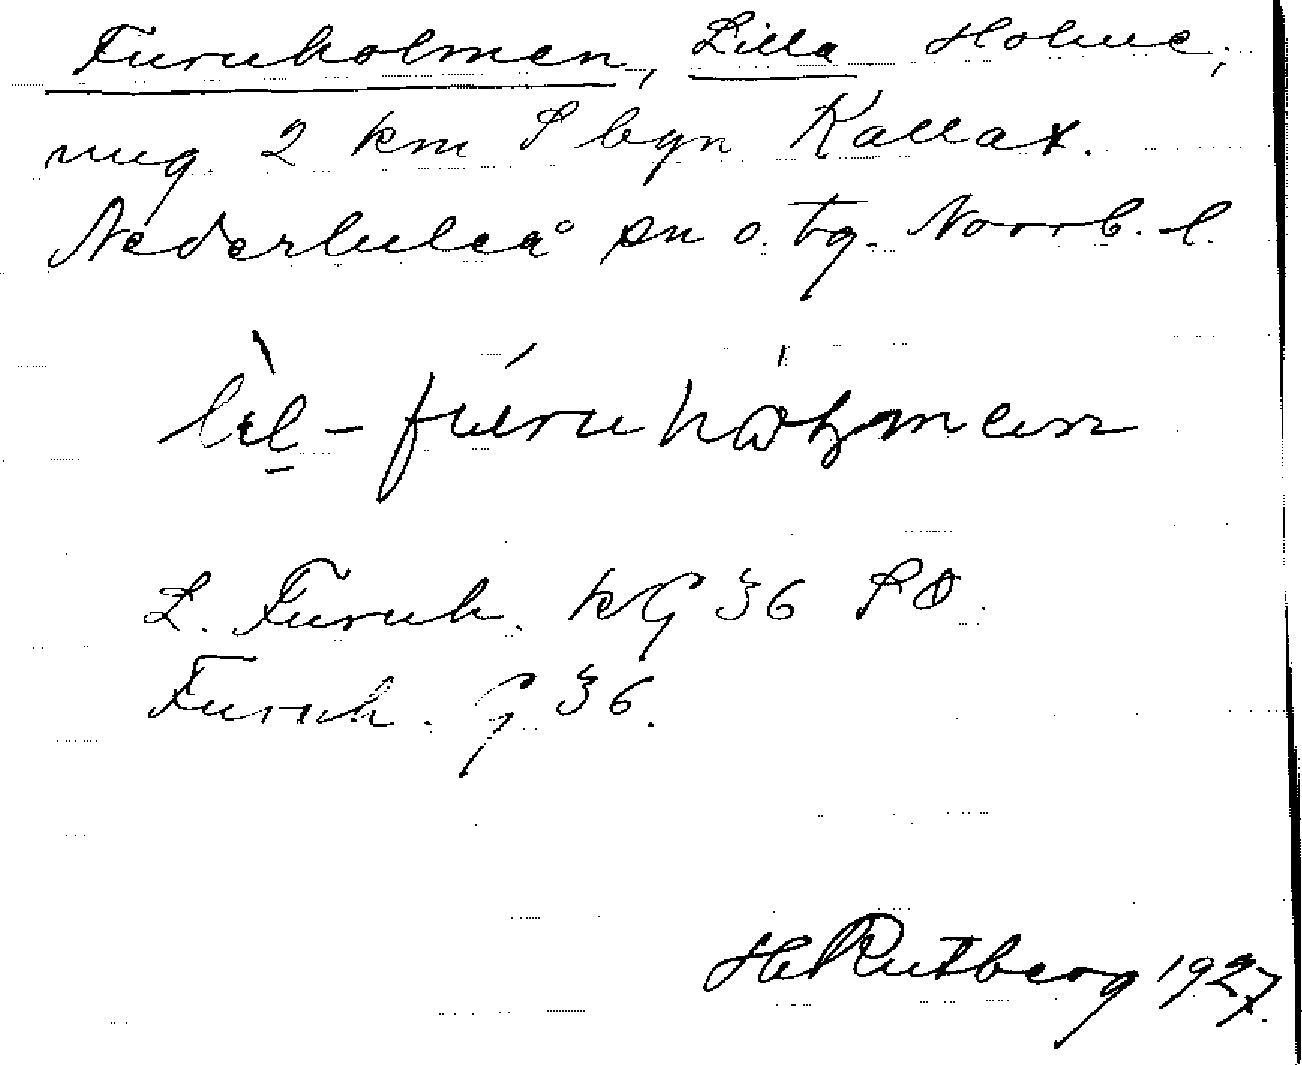 Furuholmen, Lilla Holme,
ung. 2 km S byn Kallax.
Nederluleå sn o. tg. Norrb. l.
lìl-fúruhòłmen
L. Furuh. kG 36 SO.
Furuh. G 36.
H. Rutberg 1927.